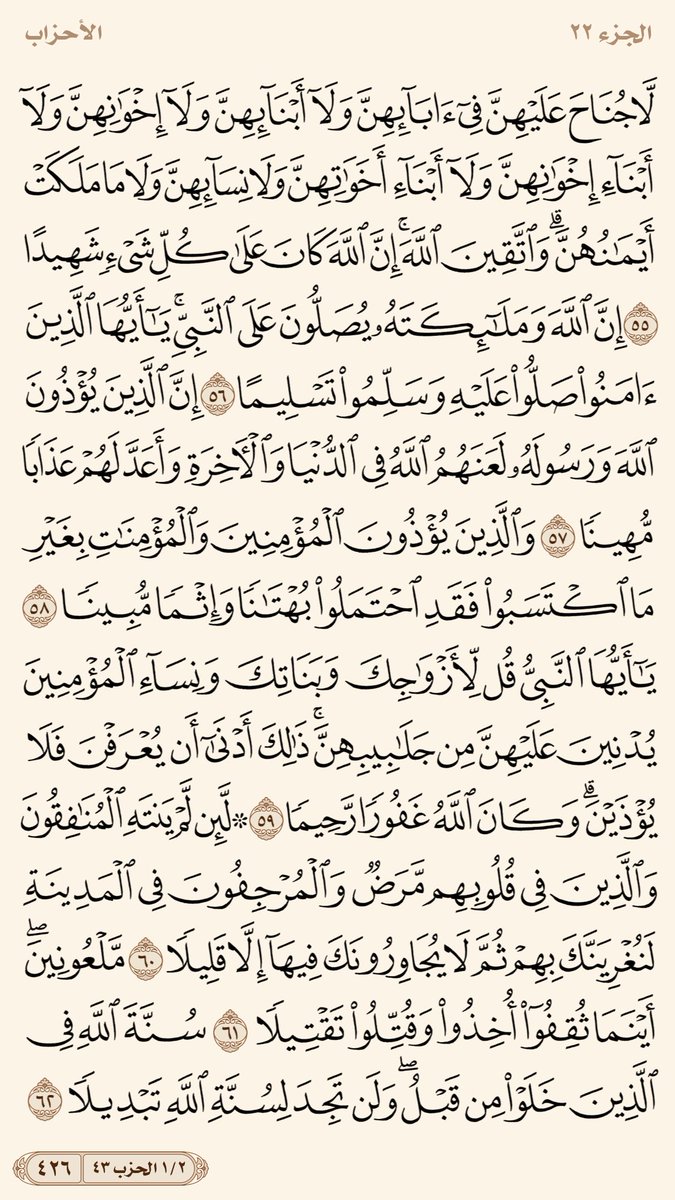 الجزء ٢٢
الأحزاب
لَّا جُنَاحَ عَلَيْهِنَّ فِىٓ ءَابَآئِهِنَّ وَلَآ أَبْنَآئِهِنَّ وَلَآ إِخْوَٰنِهِنَّ وَلَآ
أَبْنَآءِ إِخْوَٰنِهِنَّ وَلَآ أَبْنَآءِ أَخَوَٰتِهِنَّ وَلَا نِسَآئِهِنَّ وَلَا مَا مَلَكَتْ
أَيْمَٰنُهُنَّۗ وَٱتَّقِينَ ٱللَّهَۚ إِنَّ ٱللَّهَ كَانَ عَلَىٰ كُلِّ شَىْءٍ شَهِيدًا
٥٥ إِنَّ ٱللَّهَ وَمَلَٰٓئِكَتَهُۥ يُصَلُّونَ عَلَى ٱلنَّبِىِّۚ يَٰٓأَيُّهَا ٱلَّذِينَ
ءَامَنُوا۟ صَلُّوا۟ عَلَيْهِ وَسَلِّمُوا۟ تَسْلِيمًا ٥٦ إِنَّ ٱلَّذِينَ يُؤْذُونَ
ٱللَّهَ وَرَسُولَهُۥ لَعَنَهُمُ ٱللَّهُ فِى ٱلدُّنْيَا وَٱلْـَٔاخِرَةِ وَأَعَدَّ لَهُمْ عَذَابًا
مُّهِينًا ٥٧ وَٱلَّذِينَ يُؤْذُونَ ٱلْمُؤْمِنِينَ وَٱلْمُؤْمِنَٰتِ بِغَيْرِ
مَا ٱكْتَسَبُوا۟ فَقَدِ ٱحْتَمَلُوا۟ بُهْتَٰنًا وَإِثْمًا مُّبِينًا ٥٨
يَٰٓأَيُّهَا ٱلنَّبِىُّ قُل لِّأَزْوَٰجِكَ وَبَنَاتِكَ وَنِسَآءِ ٱلْمُؤْمِنِينَ
يُدْنِينَ عَلَيْهِنَّ مِن جَلَٰبِيبِهِنَّۚ ذَٰلِكَ أَدْنَىٰٓ أَن يُعْرَفْنَ فَلَا
يُؤْذَيْنَۗ وَكَانَ ٱللَّهُ غَفُورًا رَّحِيمًا ٥٩ ۞ لَّئِن لَّمْ يَنتَهِ ٱلْمُنَٰفِقُونَ
وَٱلَّذِينَ فِى قُلُوبِهِم مَّرَضٌ وَٱلْمُرْجِفُونَ فِى ٱلْمَدِينَةِ
لَنُغْرِيَنَّكَ بِهِمْ ثُمَّ لَا يُجَاوِرُونَكَ فِيهَآ إِلَّا قَلِيلًا ٦٠ مَّلْعُونِينَۖ
أَيْنَمَا ثُقِفُوٓا۟ أُخِذُوا۟ وَقُتِّلُوا۟ تَقْتِيلًا ٦١ سُنَّةَ ٱللَّهِ فِى
ٱلَّذِينَ خَلَوْا۟ مِن قَبْلُۖ وَلَن تَجِدَ لِسُنَّةِ ٱللَّهِ تَبْدِيلًا ٦٢
١/٢ الحزب ٤٣
٤٢٦